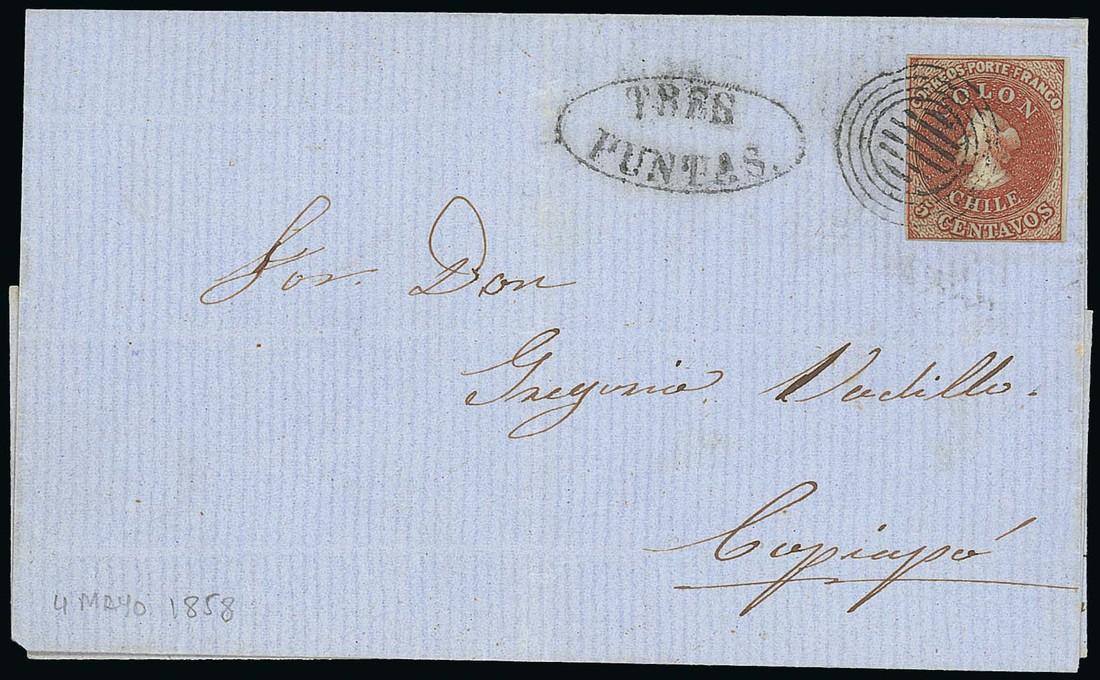 TRES
PUNTAS.
CORREOS-PORTE-FRANCO
COLON
CHILE
5 CENTAVOS
Sor. Don
Gregorio Vadillo.
Copiapó
4 MAYO 1858